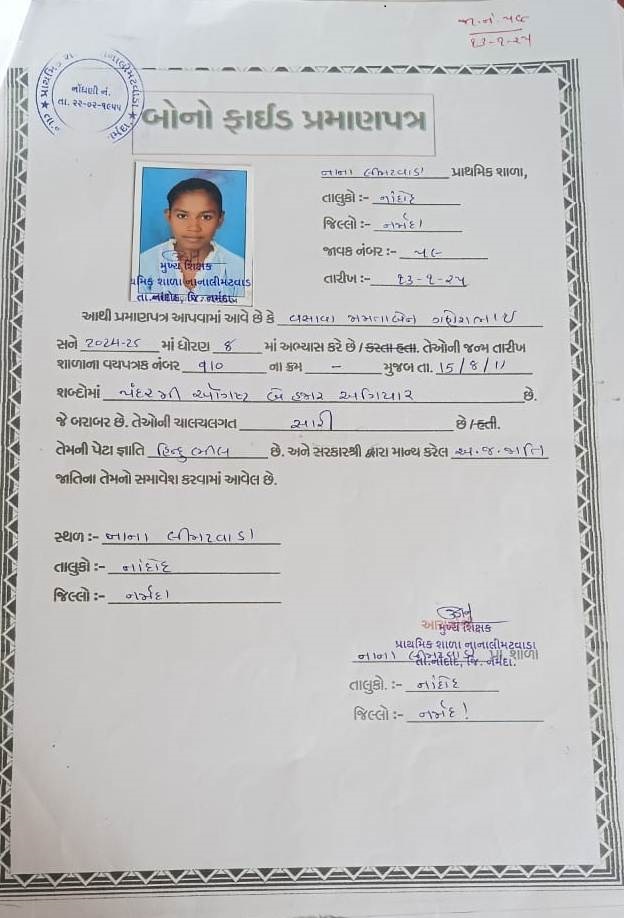 જા.નં. ૫૯
૨૩-૧-૨૫
નોંધણી નં.
તા. ૨૨-૦૨-૧૯૫૫
બોનો ફાઈડ પ્રમાણપત્ર
નાના લીમટવાડા પ્રાથમિક શાળા,
તાલુકો :- નાંદોદ
જિલ્લો :- નર્મદા
જાવક નંબર :- ૫૯
તારીખ :- ૨૩-૧-૨૫
મુખ્ય શિક્ષક
પ્રાથમિક શાળા નાનાલીમટવાડા
તા.નાંદોદ, જિ. નર્મદા
આથી પ્રમાણપત્ર આપવામાં આવે છે કે વસાવા મમતાબેન ગણેશભાઈ
સને 2024-25 માં ધોરણ ૪ માં અભ્યાસ કરે છે / કરતા હતા. તેઓની જન્મ તારીખ
શાળાના વયપત્રક નંબર ૧૧૦ ના ક્રમ — મુજબ તા. 15/8/11
શબ્દોમાં પંદરમી ઓગષ્ટ બે હજાર અગિયાર છે.
જે બરાબર છે. તેઓની ચાલચલગત સારી છે / હતી.
તેમની પેટા જ્ઞાતિ હિન્દુ ભીલ છે. અને સરકારશ્રી દ્વારા માન્ય કરેલ અ.જ.જાતિ
જાતિના તેમનો સમાવેશ કરવામાં આવેલ છે.
સ્થળ :- નાના લીમટવાડા
તાલુકો :- નાંદોદ
જિલ્લો :- નર્મદા
મુખ્ય શિક્ષક
પ્રાથમિક શાળા નાનાલીમટવાડા
તા.નાંદોદ, જિ. નર્મદા.
નાના લીમટવાડા પ્રા. શાળા
તાલુકો. :- નાંદોદ
જિલ્લો :- નર્મદા